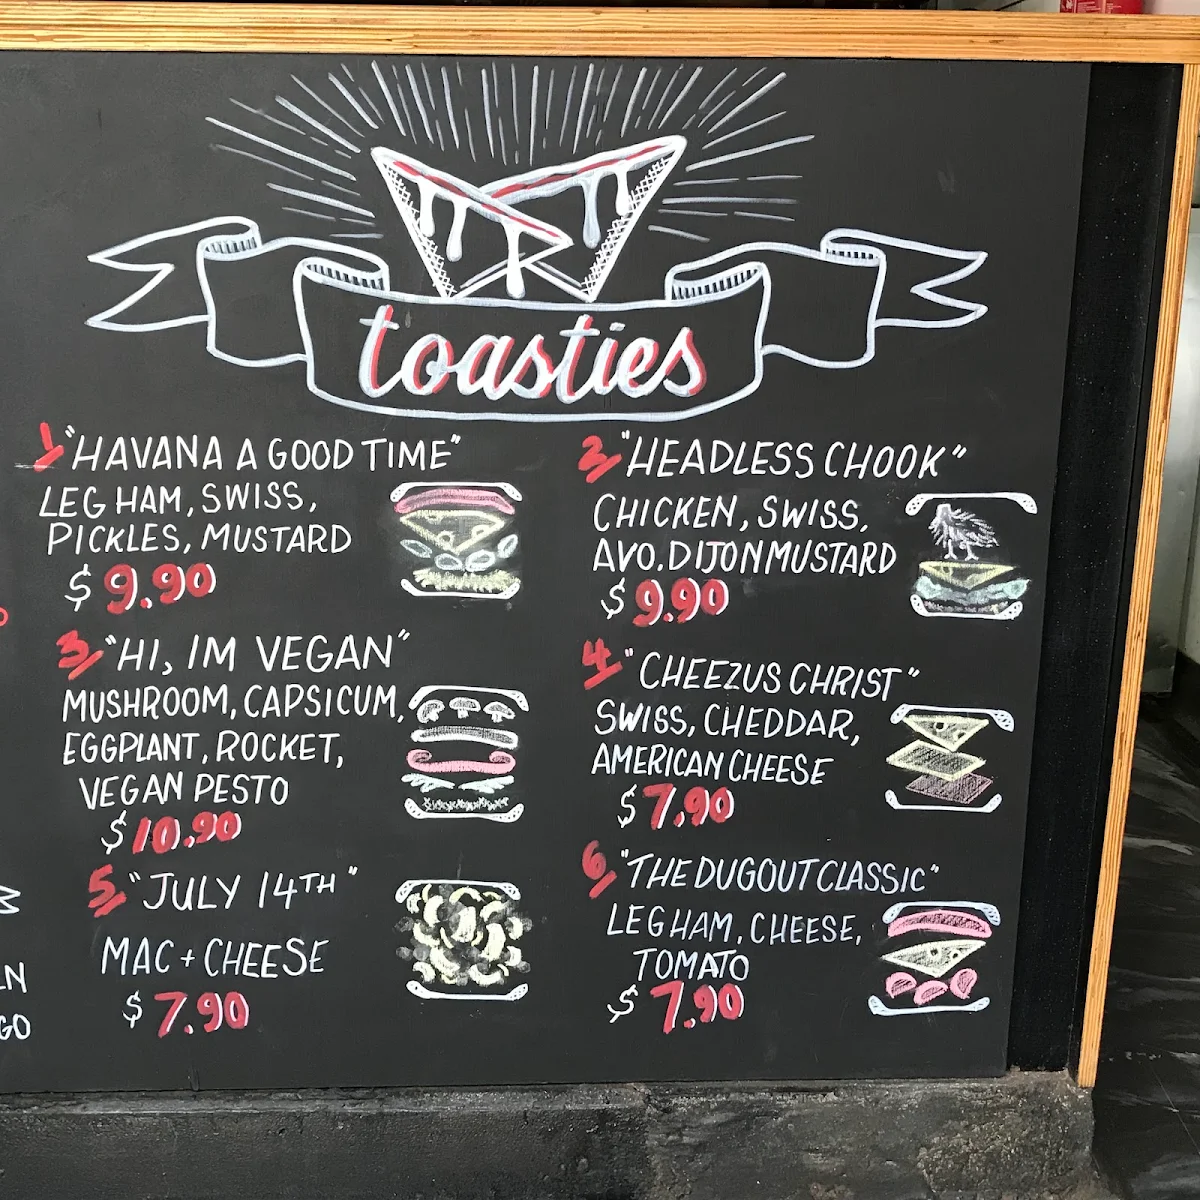 toasties
1 "HAVANA A GOOD TIME"
LEG HAM, SWISS,
PICKLES, MUSTARD
$9.90
2 "HEADLESS CHOOK"
CHICKEN, SWISS,
AVO. DIJON MUSTARD
$9.90
3 "HI, IM VEGAN"
MUSHROOM, CAPSICUM,
EGGPLANT, ROCKET,
VEGAN PESTO
$10.90
4 "CHEEZUS CHRIST"
SWISS, CHEDDAR,
AMERICAN CHEESE
$7.90
5 "JULY 14TH"
MAC + CHEESE
$7.90
6 "THE DUGOUT CLASSIC"
LEG HAM, CHEESE,
TOMATO
$7.90